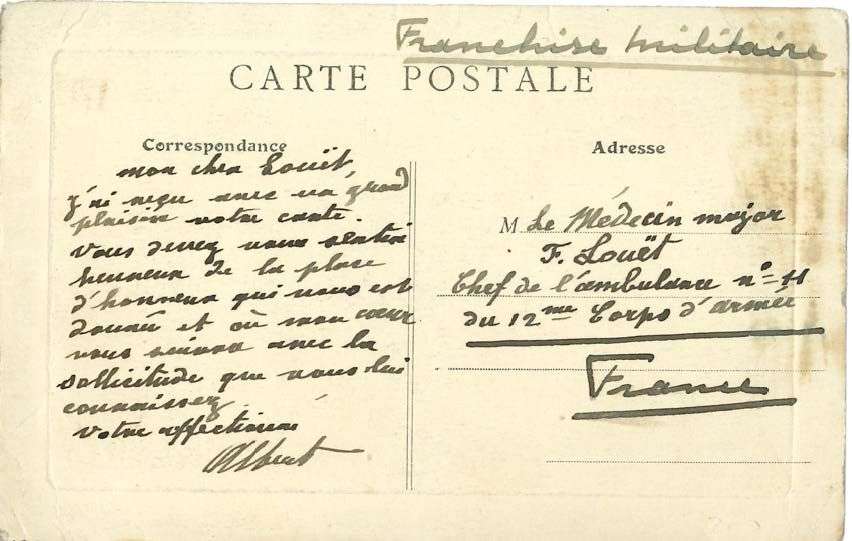 Franchise militaire
CARTE POSTALE
Correspondance
mon cher Louët,
j'ai reçu avec un grand
plaisir votre carte.
Vous devez vous sentir
heureux de la place
d'honneur qui vous est
donnée et où mon cœur
vous suivra avec la
sollicitude que vous lui
connaissez.
Votre affectionné
Albert
Adresse
M Le Médecin major
F. Louët
Chef de l'ambulance n° 11
du 12me Corps d'armée
France